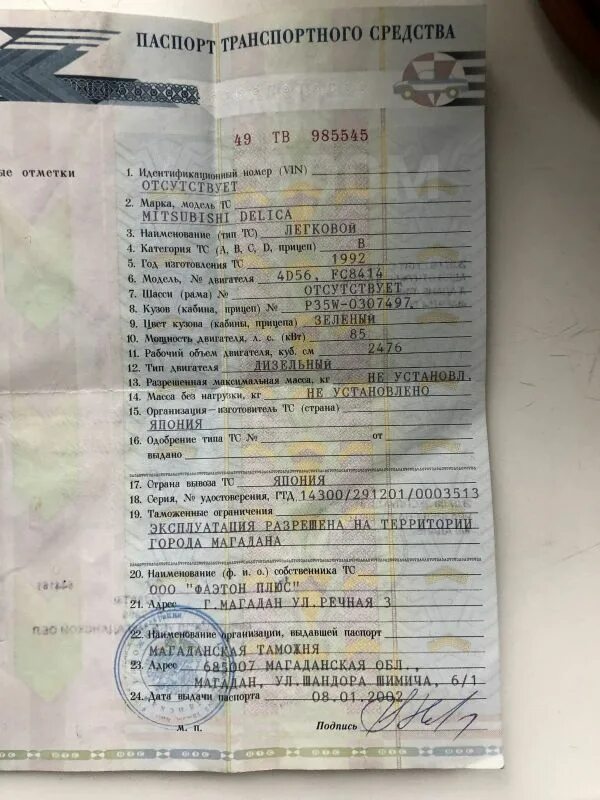 ПАСПОРТ ТРАНСПОРТНОГО СРЕДСТВА
49 ТВ 985545
ые отметки
1. Идентификационный номер (VIN)
ОТСУТСТВУЕТ
2. Марка, модель ТС
MITSUBISHI DELICA
3. Наименование (тип ТС) ЛЕГКОВОЙ
4. Категория ТС (A, B, C, D, прицеп) B
5. Год изготовления ТС 1992
6. Модель, № двигателя 4D56, FC8414
7. Шасси (рама) № ОТСУТСТВУЕТ
8. Кузов (кабина, прицеп) № P35W-0307497
9. Цвет кузова (кабины, прицепа) ЗЕЛЕНЫЙ
10. Мощность двигателя, л. с. (кВт) 85
11. Рабочий объем двигателя, куб. см 2476
12. Тип двигателя ДИЗЕЛЬНЫЙ
13. Разрешенная максимальная масса, кг НЕ УСТАНОВЛ.
14. Масса без нагрузки, кг НЕ УСТАНОВЛЕНО
15. Организация-изготовитель ТС (страна)
ЯПОНИЯ
16. Одобрение типа ТС № от
выдано
17. Страна вывоза ТС ЯПОНИЯ
18. Серия, № удостоверения, ГТД 14300/291201/0003513
19. Таможенные ограничения
ЭКСПЛУАТАЦИЯ РАЗРЕШЕНА НА ТЕРРИТОРИИ
ГОРОДА МАГАДАНА
20. Наименование (ф. и. о.) собственника ТС
ООО "ФАЭТОН ПЛЮС"
21. Адрес Г.МАГАДАН УЛ.РЕЧНАЯ 3
22. Наименование организации, выдавшей паспорт
МАГАДАНСКАЯ ТАМОЖНЯ
23. Адрес 685007 МАГАДАНСКАЯ ОБЛ.,
МАГАДАН, УЛ.ШАНДОРА ШИМИЧА, 6/1
24. Дата выдачи паспорта 08.01.2002
М. П. Подпись